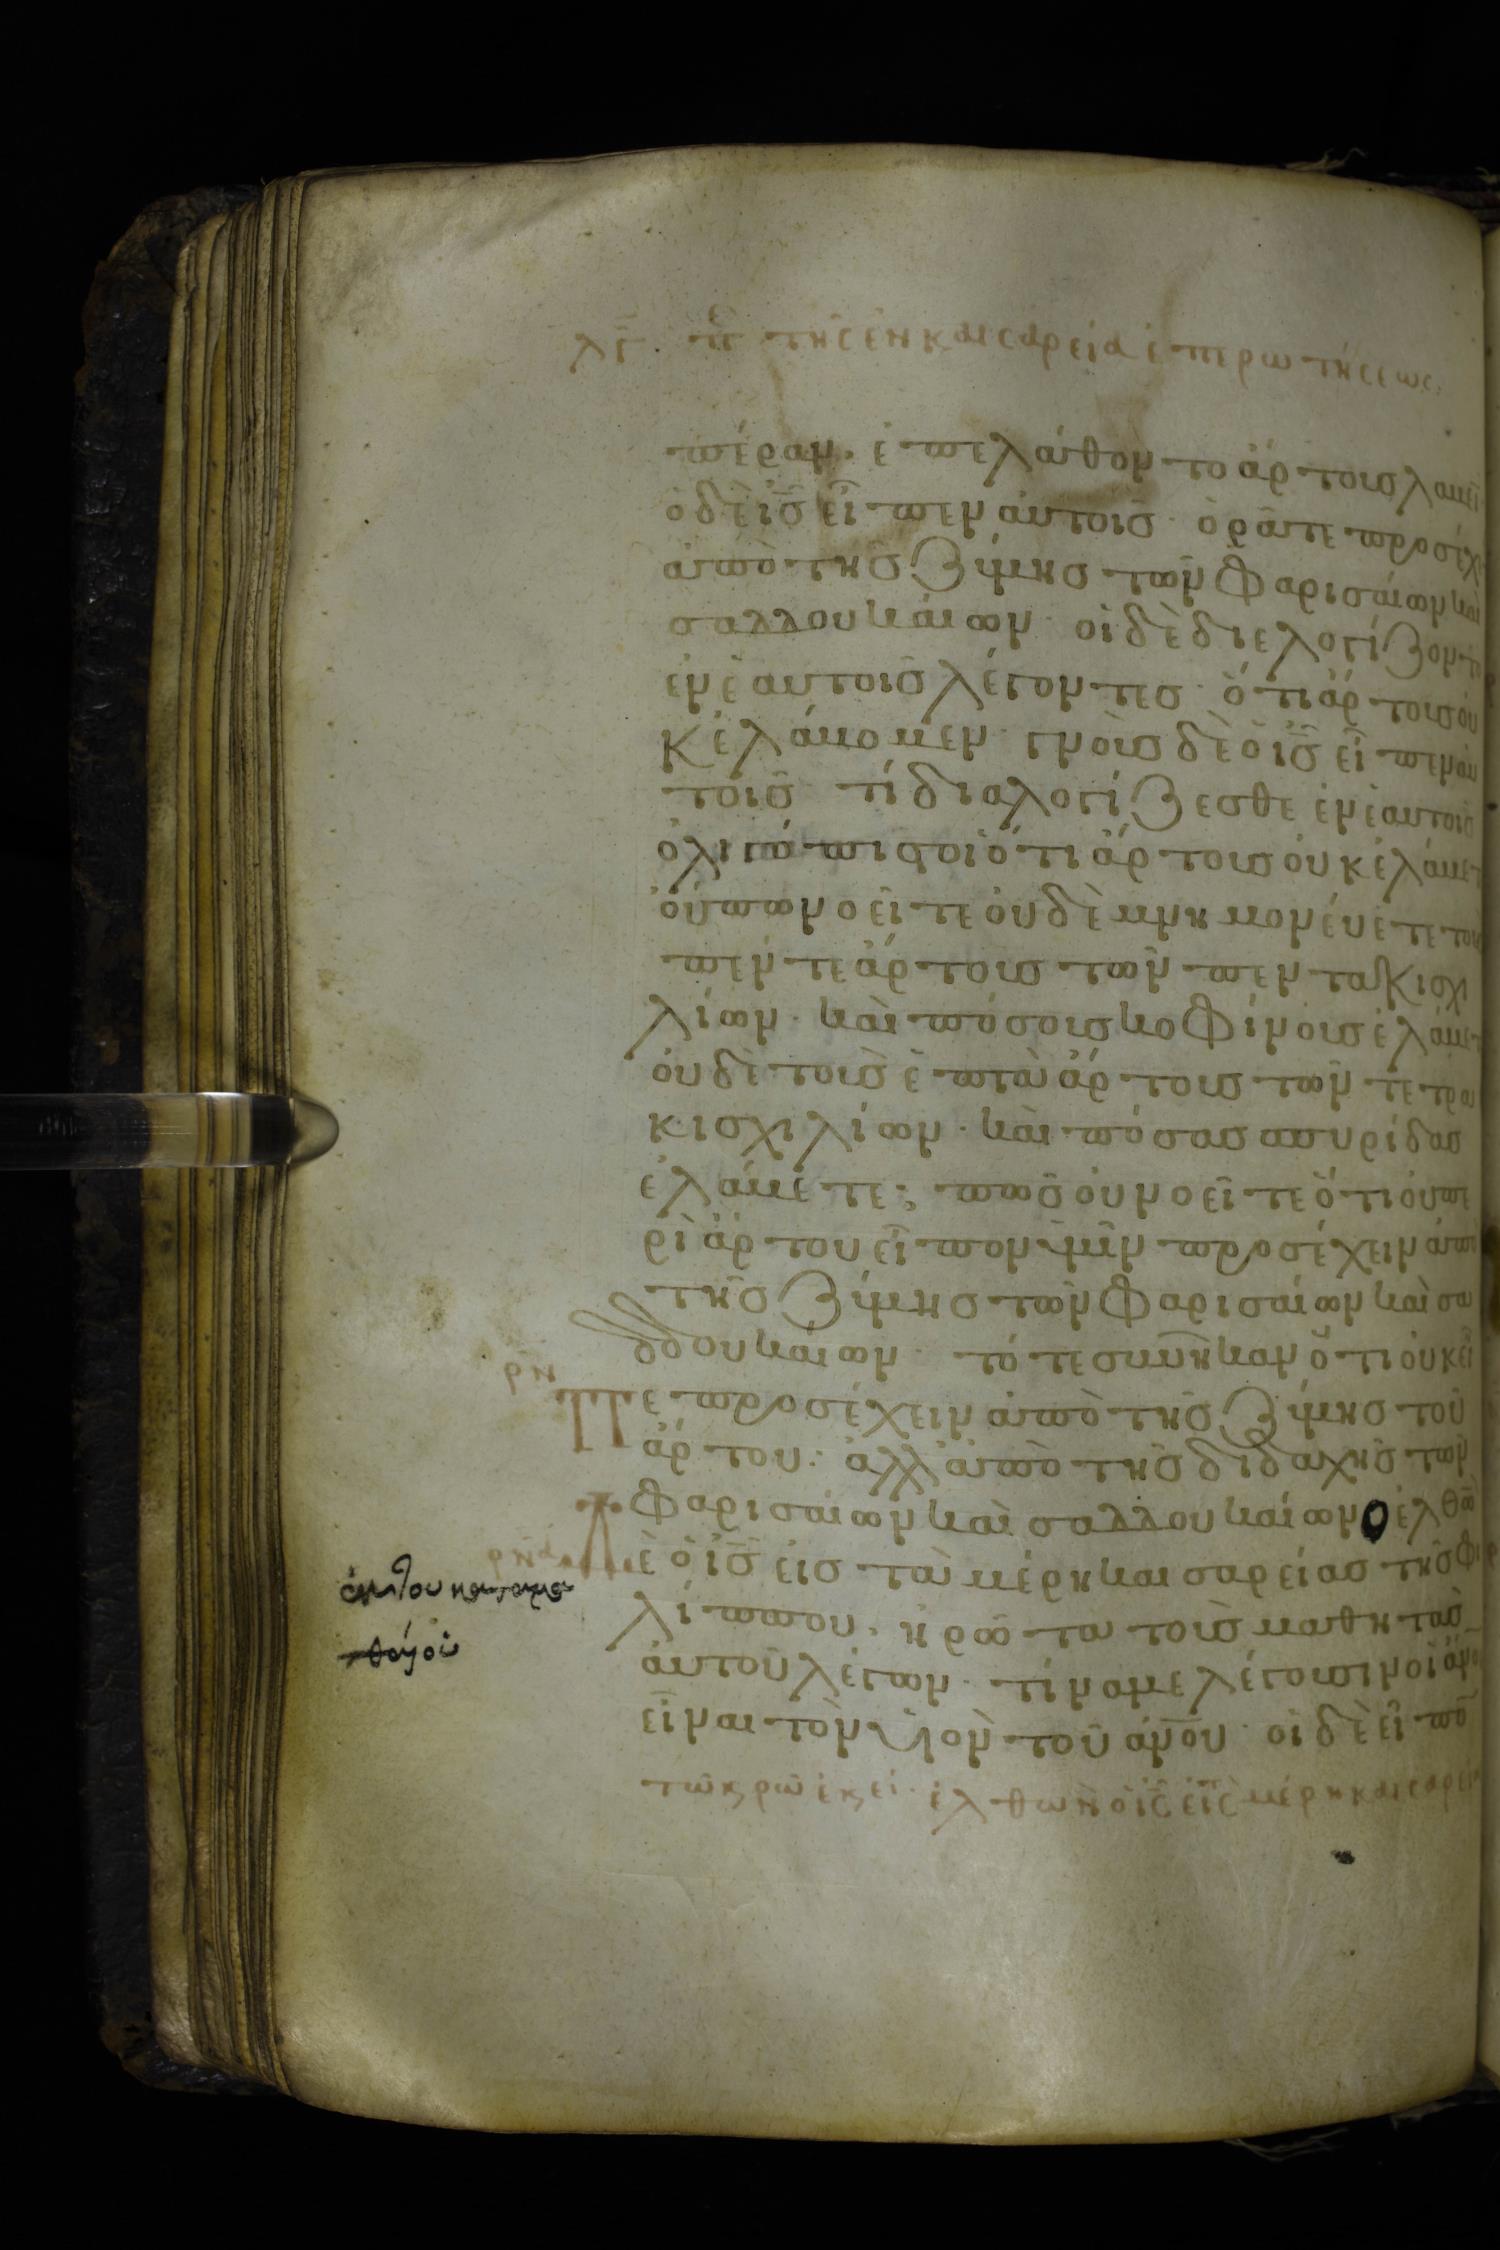 λγ π̅ε̅ τῆς ἐν καισαρεία ἐπερωτήσεως
πέραν· ἐπελάθοντο ἄρτους λαβεῖ
ὁ δὲ ι̅ς̅ εἶπεν αὐτοῖς· ὁρᾶτε προσέχε
ἀπὸ τῆς ζύμης τῶν φαρισαίων καὶ
σαδδουκαίων· οἱ δὲ διελογίζοντο
ἐν ἑαυτοῖς λέγοντες· ὅτι ἄρτους οὐ
κ ἐλάβομεν· γνοὺς δὲ ὁ ι̅ς̅ εἶπεν αὐ
τοῖς· τί διαλογίζεσθε ἐν ἑαυτοῖς
ὀλιγόπιστοι ὅτι ἄρτους οὐκ ἐλάβετ
οὔπω νοεῖτε οὐδὲ μνημονεύετε τοὺς
πέντε ἄρτους τῶν πεντακισχι
λίων· καὶ πόσους κοφίνους ἐλάβετ
οὐδὲ τοὺς ἑπτὰ ἄρτους τῶν τετρα
κισχιλίων· καὶ πόσας σπυρίδας
ἐλάβετε; πῶς οὐ νοεῖτε ὅτι οὐ πε
ρὶ ἄρτου εἶπον ὑμῖν προσέχειν ἀπὸ
τῆς ζύμης τῶν φαρισαίων καὶ σα
δδουκαίων· τότε συνῆκαν ὅτι οὐκ εἶ
ρ̅ν̅ πε προσέχειν ἀπὸ τῆς ζύμης τοῦ
ἄρτου· ἀλλ' ἀπὸ τῆς διδαχῆς τῶν
φαρισαίων καὶ σαδδουκαίων ἐλθὼ
δὲ ὁ ι̅ς̅ εἰς τὰ μέρη καισαρείας τῆς φι
ἐκ του κατα μα
λίππου· ἠρώτα τοὺς μαθητὰς
θαῖον
αὐτοῦ λέγων· τίνα με λέγουσιν οἱ ἄνοι
εἶναι τὸν υἱὸν τοῦ α̅ν̅ο̅υ̅· οἱ δὲ εἶπο
τῶ κρῶ ἐκεί· ἐλθὼν ὁ ι̅ς̅ εἰς τ μέρη καισαρεί